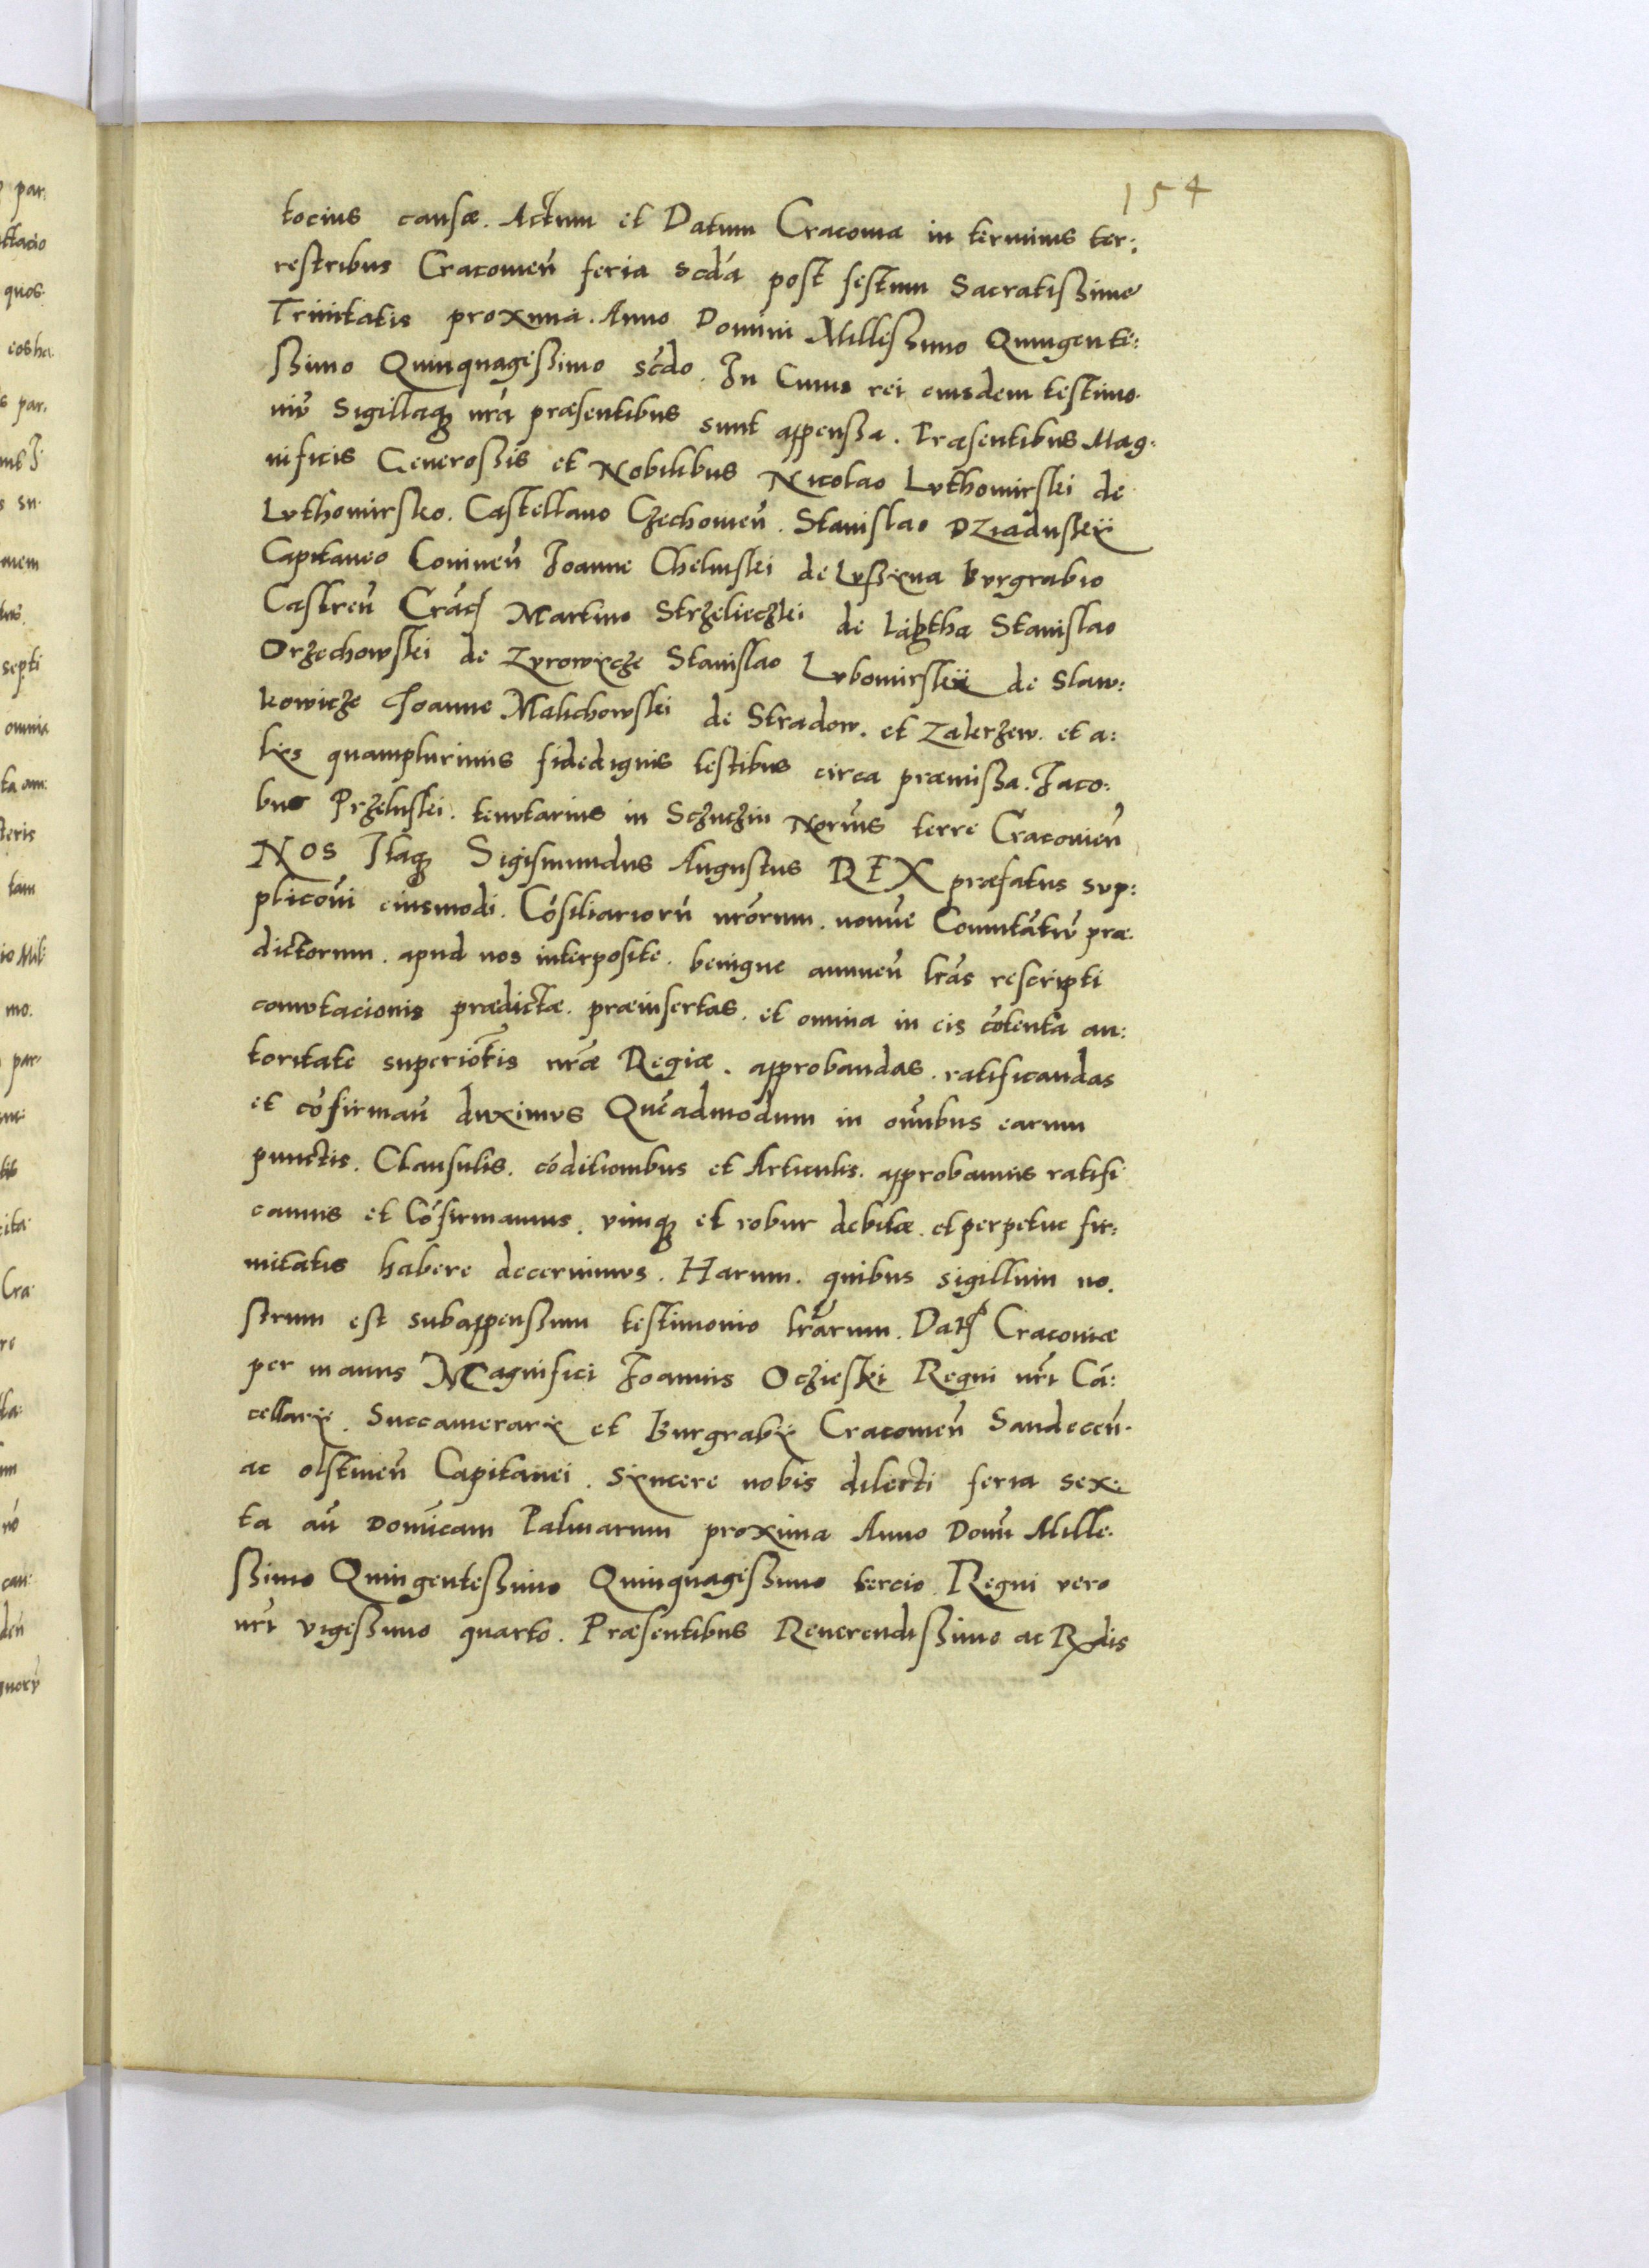 154
tocius causæ. Actum et Datum Cracoviæ in terminis ter:
restribus Cracovieñ feria scd́a post festum Sacratissime
Trinitatis proxima. Anno Domini Millessimo Quingente:
ssimo Quinquagessimo sćdo. In Cuius rei eiusdem testimo.
niu͂ Sigillaqꝫ nr͂a præsentibus sunt appenssa. Præsentibus Mag:
nificis Generossis et Nobilibus Nicolao Lvthomirskj de
Lvthomirsko. Castellano Czechovieñ. Stanislao Dziaduskÿ
Capitaneo Coninieñ Joanne Chelmskj de Lvssyna Bvrgrabio
Castreñ Crac̃ Martino Strzelieczkj de Stanislao
Orzechowskj de Zvrowycze Stanislao Lvbomirskÿ de Slaw:
kowicze Joanne Malichowskj de Stradow. et Zakrzew. et a:
lys quamplurimis fidedignis testibus circa præmissa. Jaco:
bus Przeluskj. tenvtarius in Sczuczin Nor͂ius terre Cracovieñ
NOS Itaqꝫ Sigismundus Augustus REX præfatus svp:
plicõni eiusmodi. Cõsiliarioru͂ nr͂orum. no͂ie Com͂utãtiu͂ præ.
dictorum. apud nos interposite. benigne annueñ lr͂as rescripti
comvtacionis prædictæ. præinsertas. et omnia in eis cõtenta au:
toritate superiõtis nr͂æ Regiæ. approbandas. ratificandas
et cõfirmañ duximvs Que͂admodum in o͂ibus earum
punctis. Clausulis. cõditionibus et Articulis. approbamus ratifi
camus et Cõfirmamus. vimqꝫ et robur debitæ. et perpetue fir:
mitatis habere decernimvs. Harum. quibus sigillum no.
strum est subappenssum testimonio lr͂arum. Datꝭ Cracoviæ
per manus Magnifici Joannis Oczieski Regni nr͂i Cã:
cellarÿ. Succamerarÿ et Burgrabÿ Cracovieñ Sandeceñ.
ac olstineñ Capitanei. Syncere nobis dilecti feria sex:
ta añ Domi͂cam Palmarum proxima Anno Domi͂ Mille.
ssimo Quingentessimo Quinquagessimo tercio. Regni vero
nr͂i vigessimo quarto. Præsentibus Reuerendissimo ac R͂dis